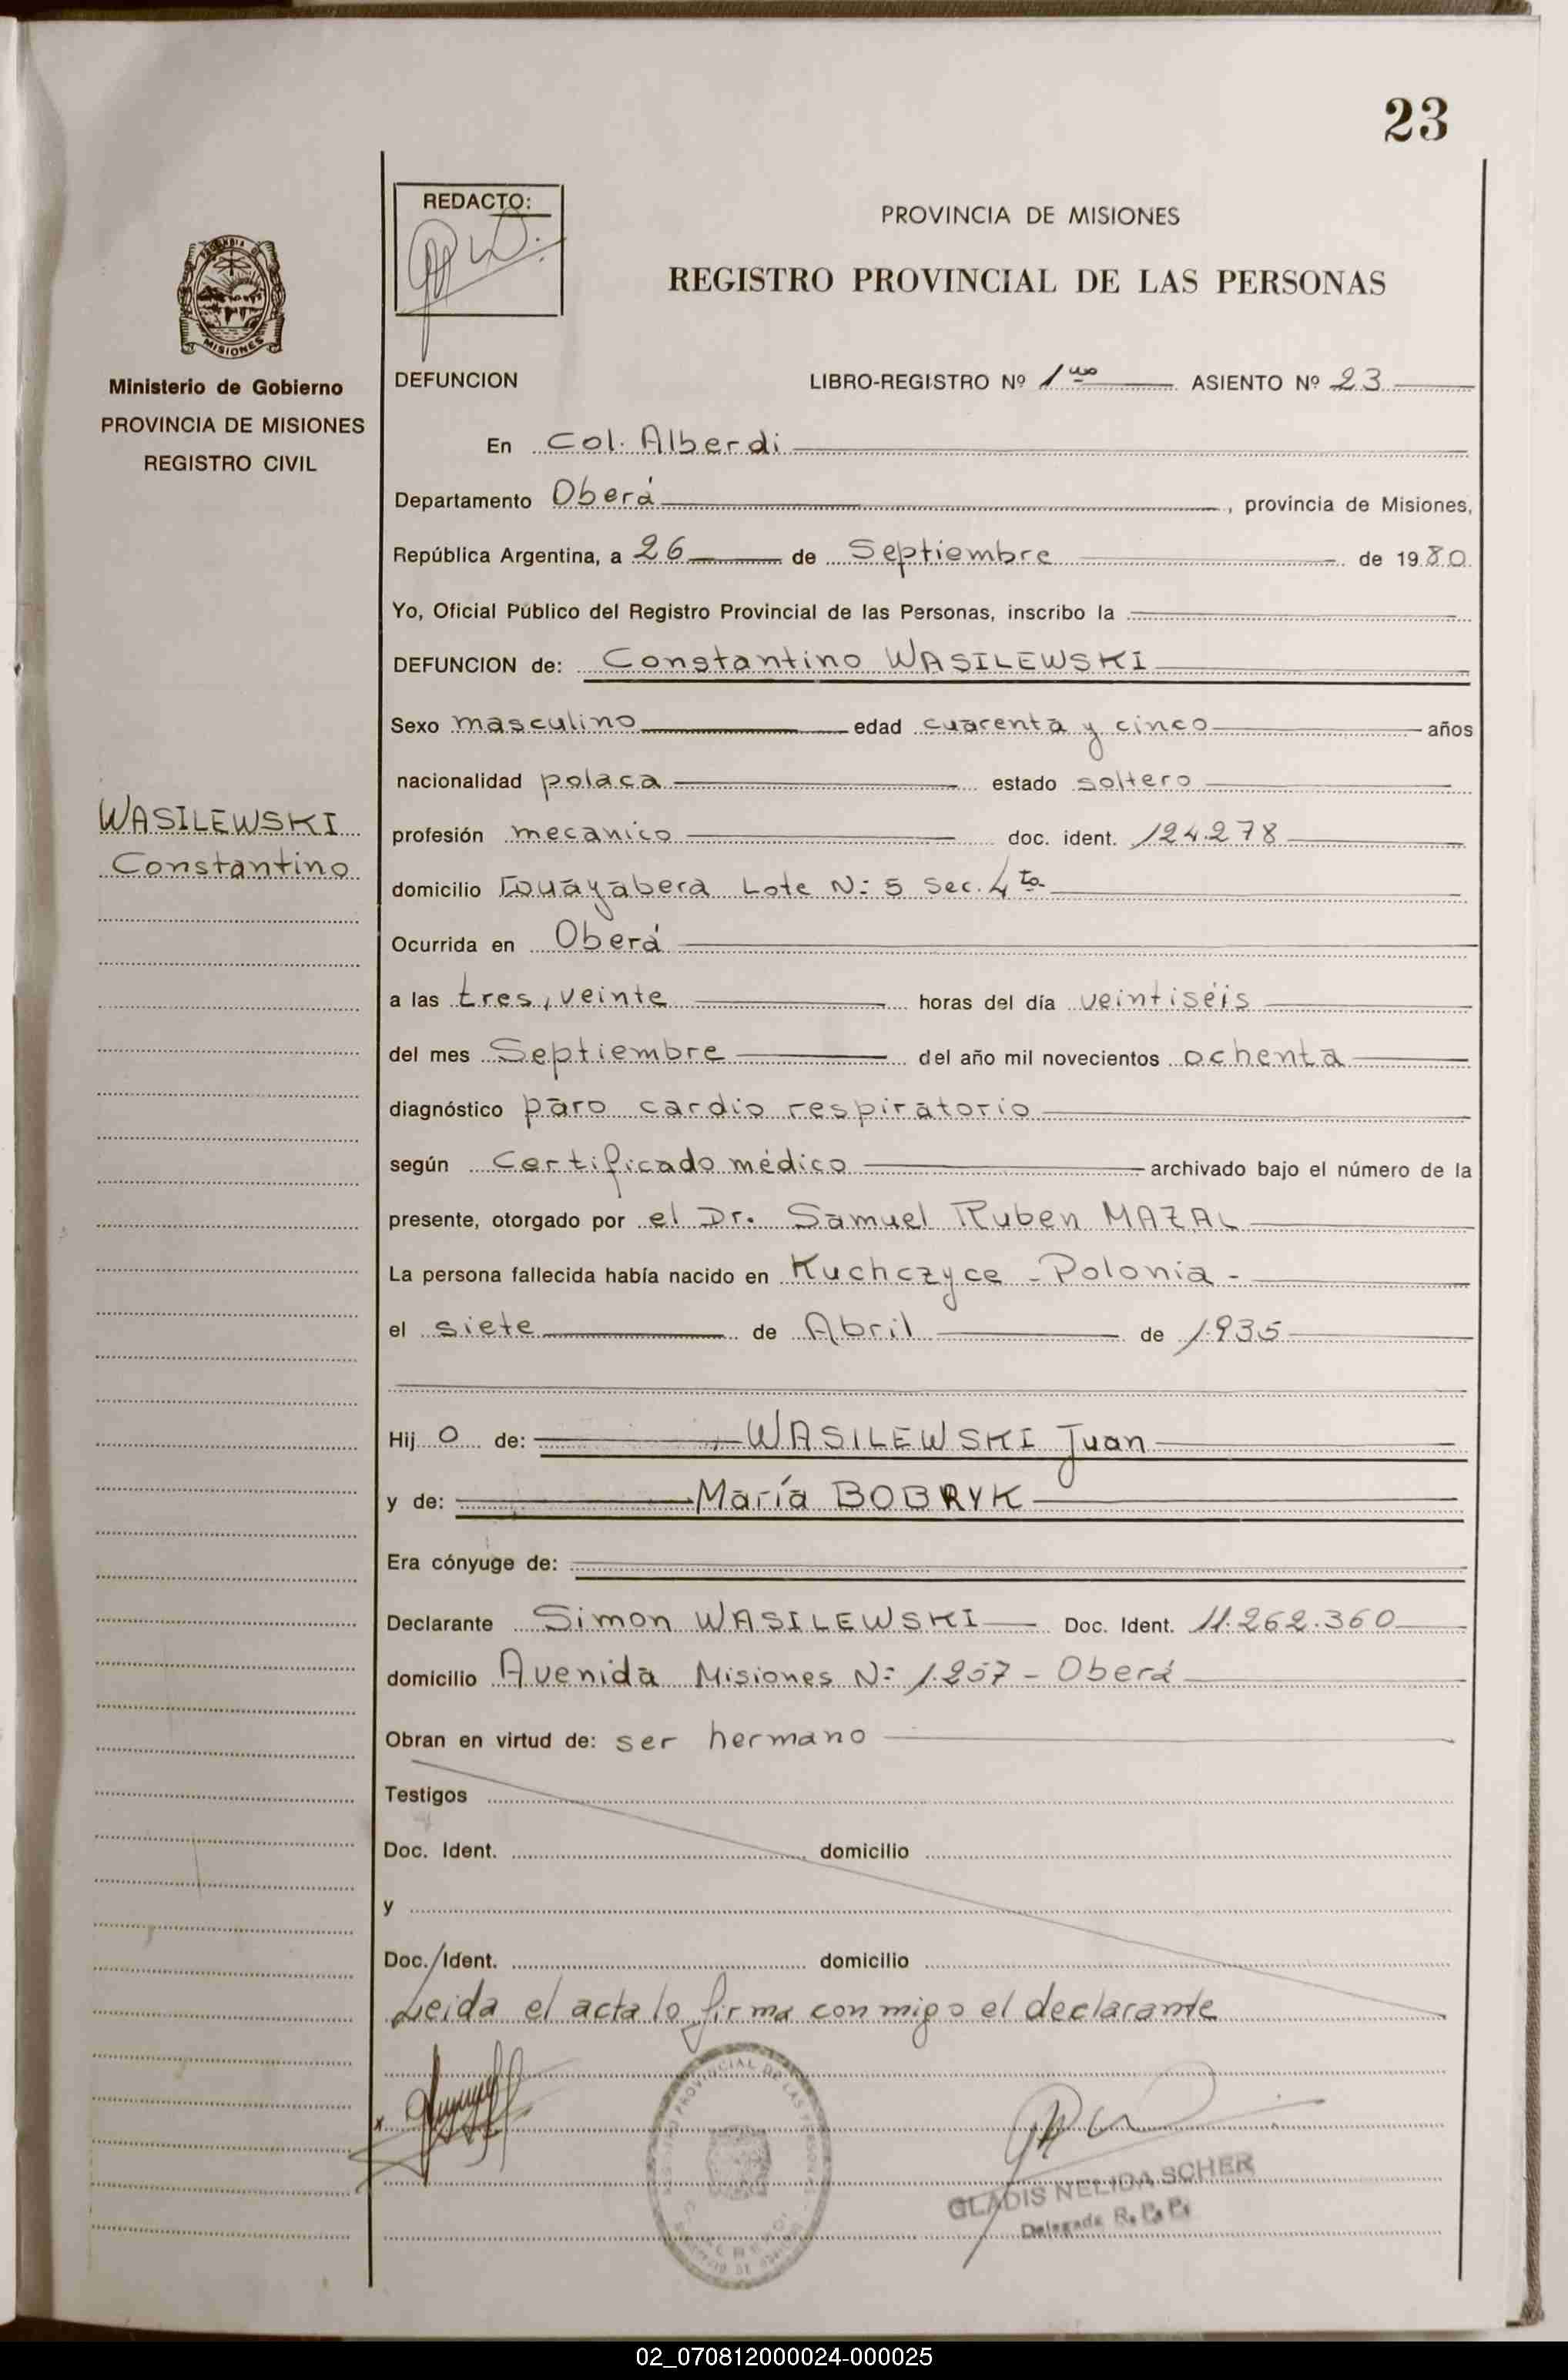 23
REDACTO:
PROVINCIA DE MISIONES
REGISTRO PROVINCIAL DE LAS PERSONAS
MISIONES
Ministerio de Gobierno
PROVINCIA DE MISIONES
REGISTRO CIVIL
DEFUNCION LIBRO-REGISTRO Nº 1 ASIENTO Nº 23
En Col. Alberdi
Departamento Oberá, provincia de Misiones,
República Argentina, a 26 de Septiembre de 1980
Yo, Oficial Público del Registro Provincial de las Personas, inscribo la
DEFUNCION de: Constantino WASILEWSKI
Sexo masculino edad cuarenta y cinco años
nacionalidad polaca estado soltero
WASILEWSKI
Constantino
profesión mecanico doc. ident. 124.278
domicilio Guayabera Lote N: 5 Sec. 4ta
Ocurrida en Oberá
a las tres, veinte horas del día veintiséis
del mes Septiembre del año mil novecientos ochenta
diagnóstico paro cardio respiratorio
según Certificado médico archivado bajo el número de la
presente, otorgado por el Dr. Samuel Ruben MAZAL
La persona fallecida había nacido en Kuchczyce - Polonia -
el siete de Abril de 1935
Hijo de: WASILEWSKI Juan
y de: María BOBRYK
Era cónyuge de:
Declarante Simon WASILEWSKI Doc. Ident. 11.262.360
domicilio Avenida Misiones N: 1.257 - Oberá
Obran en virtud de: ser hermano
Testigos
Doc. Ident. domicilio
y
Doc. Ident. domicilio
Leida el acta lo firma conmigo el declarante
GLADIS NELIDA SCHER
Delegada R. P. P.
02_070812000024-000025